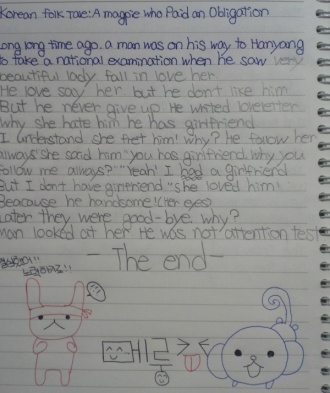 Korean folk Tale: A magpie who Paid an Obligation
Long long time ago. a man was on his way to Hanyang
to take a national examination when he saw very
beautiful lady fall in love her
He love say her but he don't like him
But he never give up He writed loveletter
Why she hate him he has girlfriend
I understand she him! why? He follow her
always she said him "you has girlfriend why you
follow me always?" "Yeah! I had a girlfriend
But I don't have girlfriend" she loved him!
Beacause he handsome!(her eyes)
Later they were good-bye why?
Man looked at her He was not attention test
- The end -